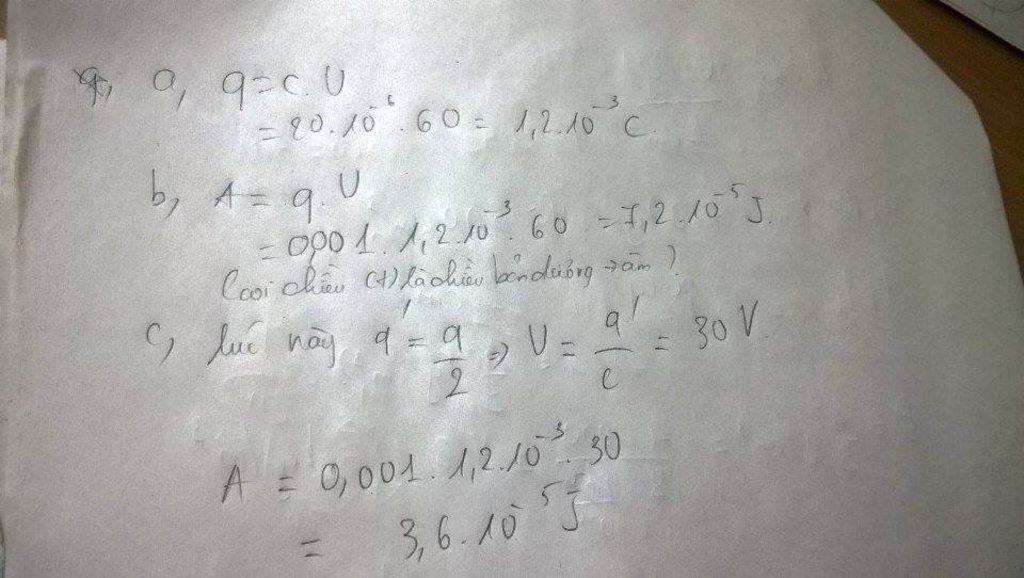 a, q = C.U
= 20.10⁻⁶.60 = 1,2.10⁻³ C.
b, A = q.U
= 0,001.1,2.10⁻³.60 = 7,2.10⁻⁵ J.
(coi chiều (+) là chiều bản dương → âm)
c, lúc này q' = q/2 => U = q'/C = 30 V.
A = 0,001.1,2.10⁻³.30
= 3,6.10⁻⁵ J